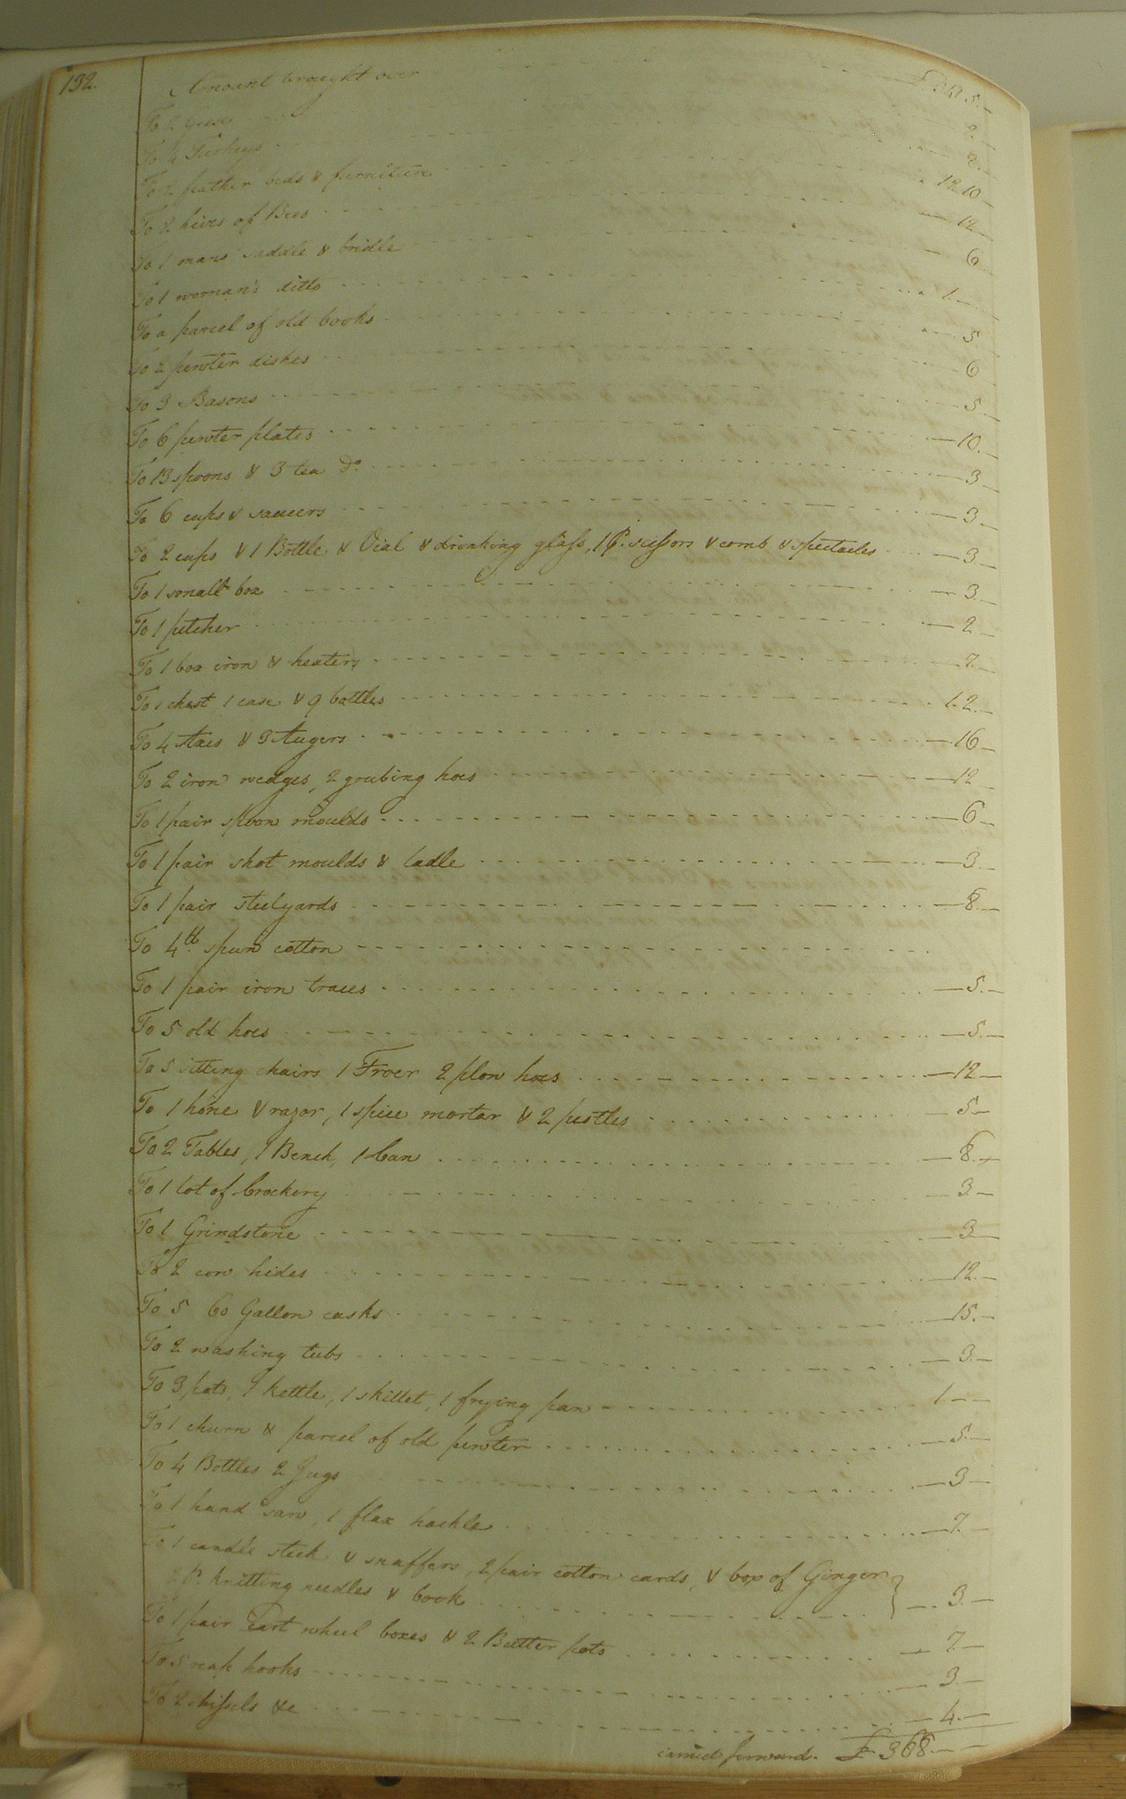 132.
Amount brought over £ 341.5.–
To 2 geese 2.–
To 4 Turkeys 8.–
To 2 feather beds & furniture 12.10–
To 2 hives of Bees 12–
To 1 mans saddle & bridle 6–
To 1 woman's ditto 1.–
To a parcel of old books 5
To 2 pewter dishes 6
To 3 Basons 5–
To 6 pewter plates 10.–
To 13 spoons & 3 tea do. 3–
To 6 cups & saucers 3–
To 2 cups & 1 Bottle & Vial & drinking glass, 1 pr. scissors & comb & spectacles 3–
To 1 small box 3.–
To 1 pitcher 2–
To 1 box iron & heaters 7–
To 1 chest 1 case & 9 bottles 1.2.–
To 4 Axes & 3 Augers 16–
To 2 iron wedges, 2 grubing hoes 12
To 1 pair spoon moulds 6–
To 1 pair shot moulds & ladle 3–
To 1 pair steelyards 8–
To 4 lb. spun cotton
To 1 pair iron traces 5.–
To 5 old hoes 5.–
To 5 sitting chairs 1 Froer 2 plow hoes 12–
To 1 hone & razor, 1 spice mortar & 2 pestles 5–
To 2 Tables, 1 Bench, 1 Can 8–
To 1 lot of Crockery 3–
To 1 Grindstone 3–
To 2 cow hides 12.–
To 5 60 Gallon casks 15.–
To 2 washing tubs 3.–
To 3 pots, 1 kettle, 1 skillet, 1 frying pan 1 – –
To 1 churn & parcel of old pewter 5–
To 4 Bottles 2 Jugs 3–
To 1 hand saw, 1 flax hackle 7.–
To 1 candle stick & snuffers, 2 pair cotton cards, & box of Ginger
pr. knitting needles & book 3.–
To 1 pair Cart wheel boxes & 2 Butter pots 7–
To 5 reap hooks 3.–
To 2 chissels &c 4.–
carried forward. £ 368.– –